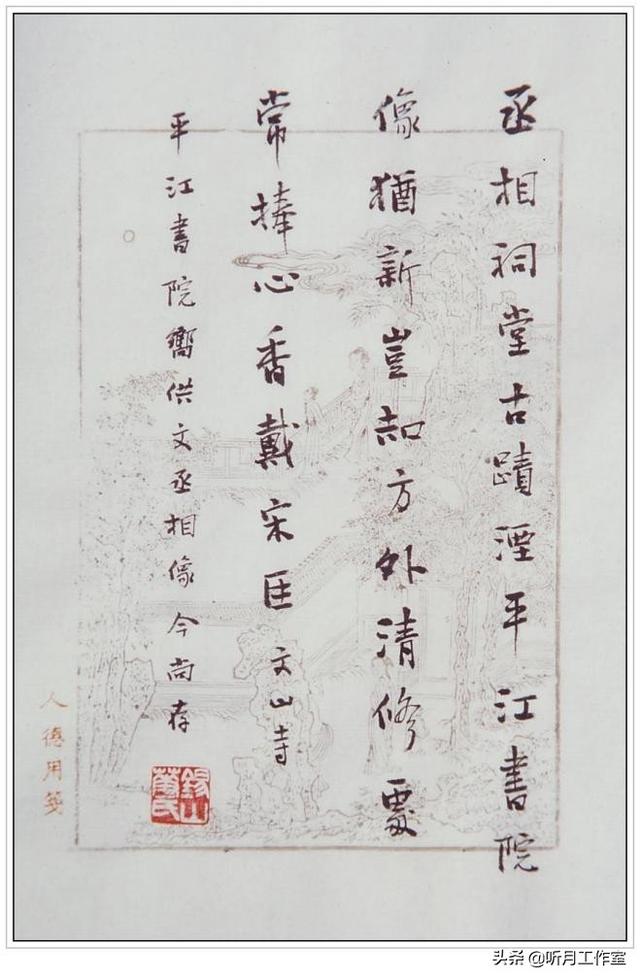 丞相祠堂古蹟湮平江書院
像猶新豈知方外清修處
常捧心香戴宋臣 文山寺
平江書院嚮供文丞相像今尚存
錫山
人德用箋
头条 @听月工作室